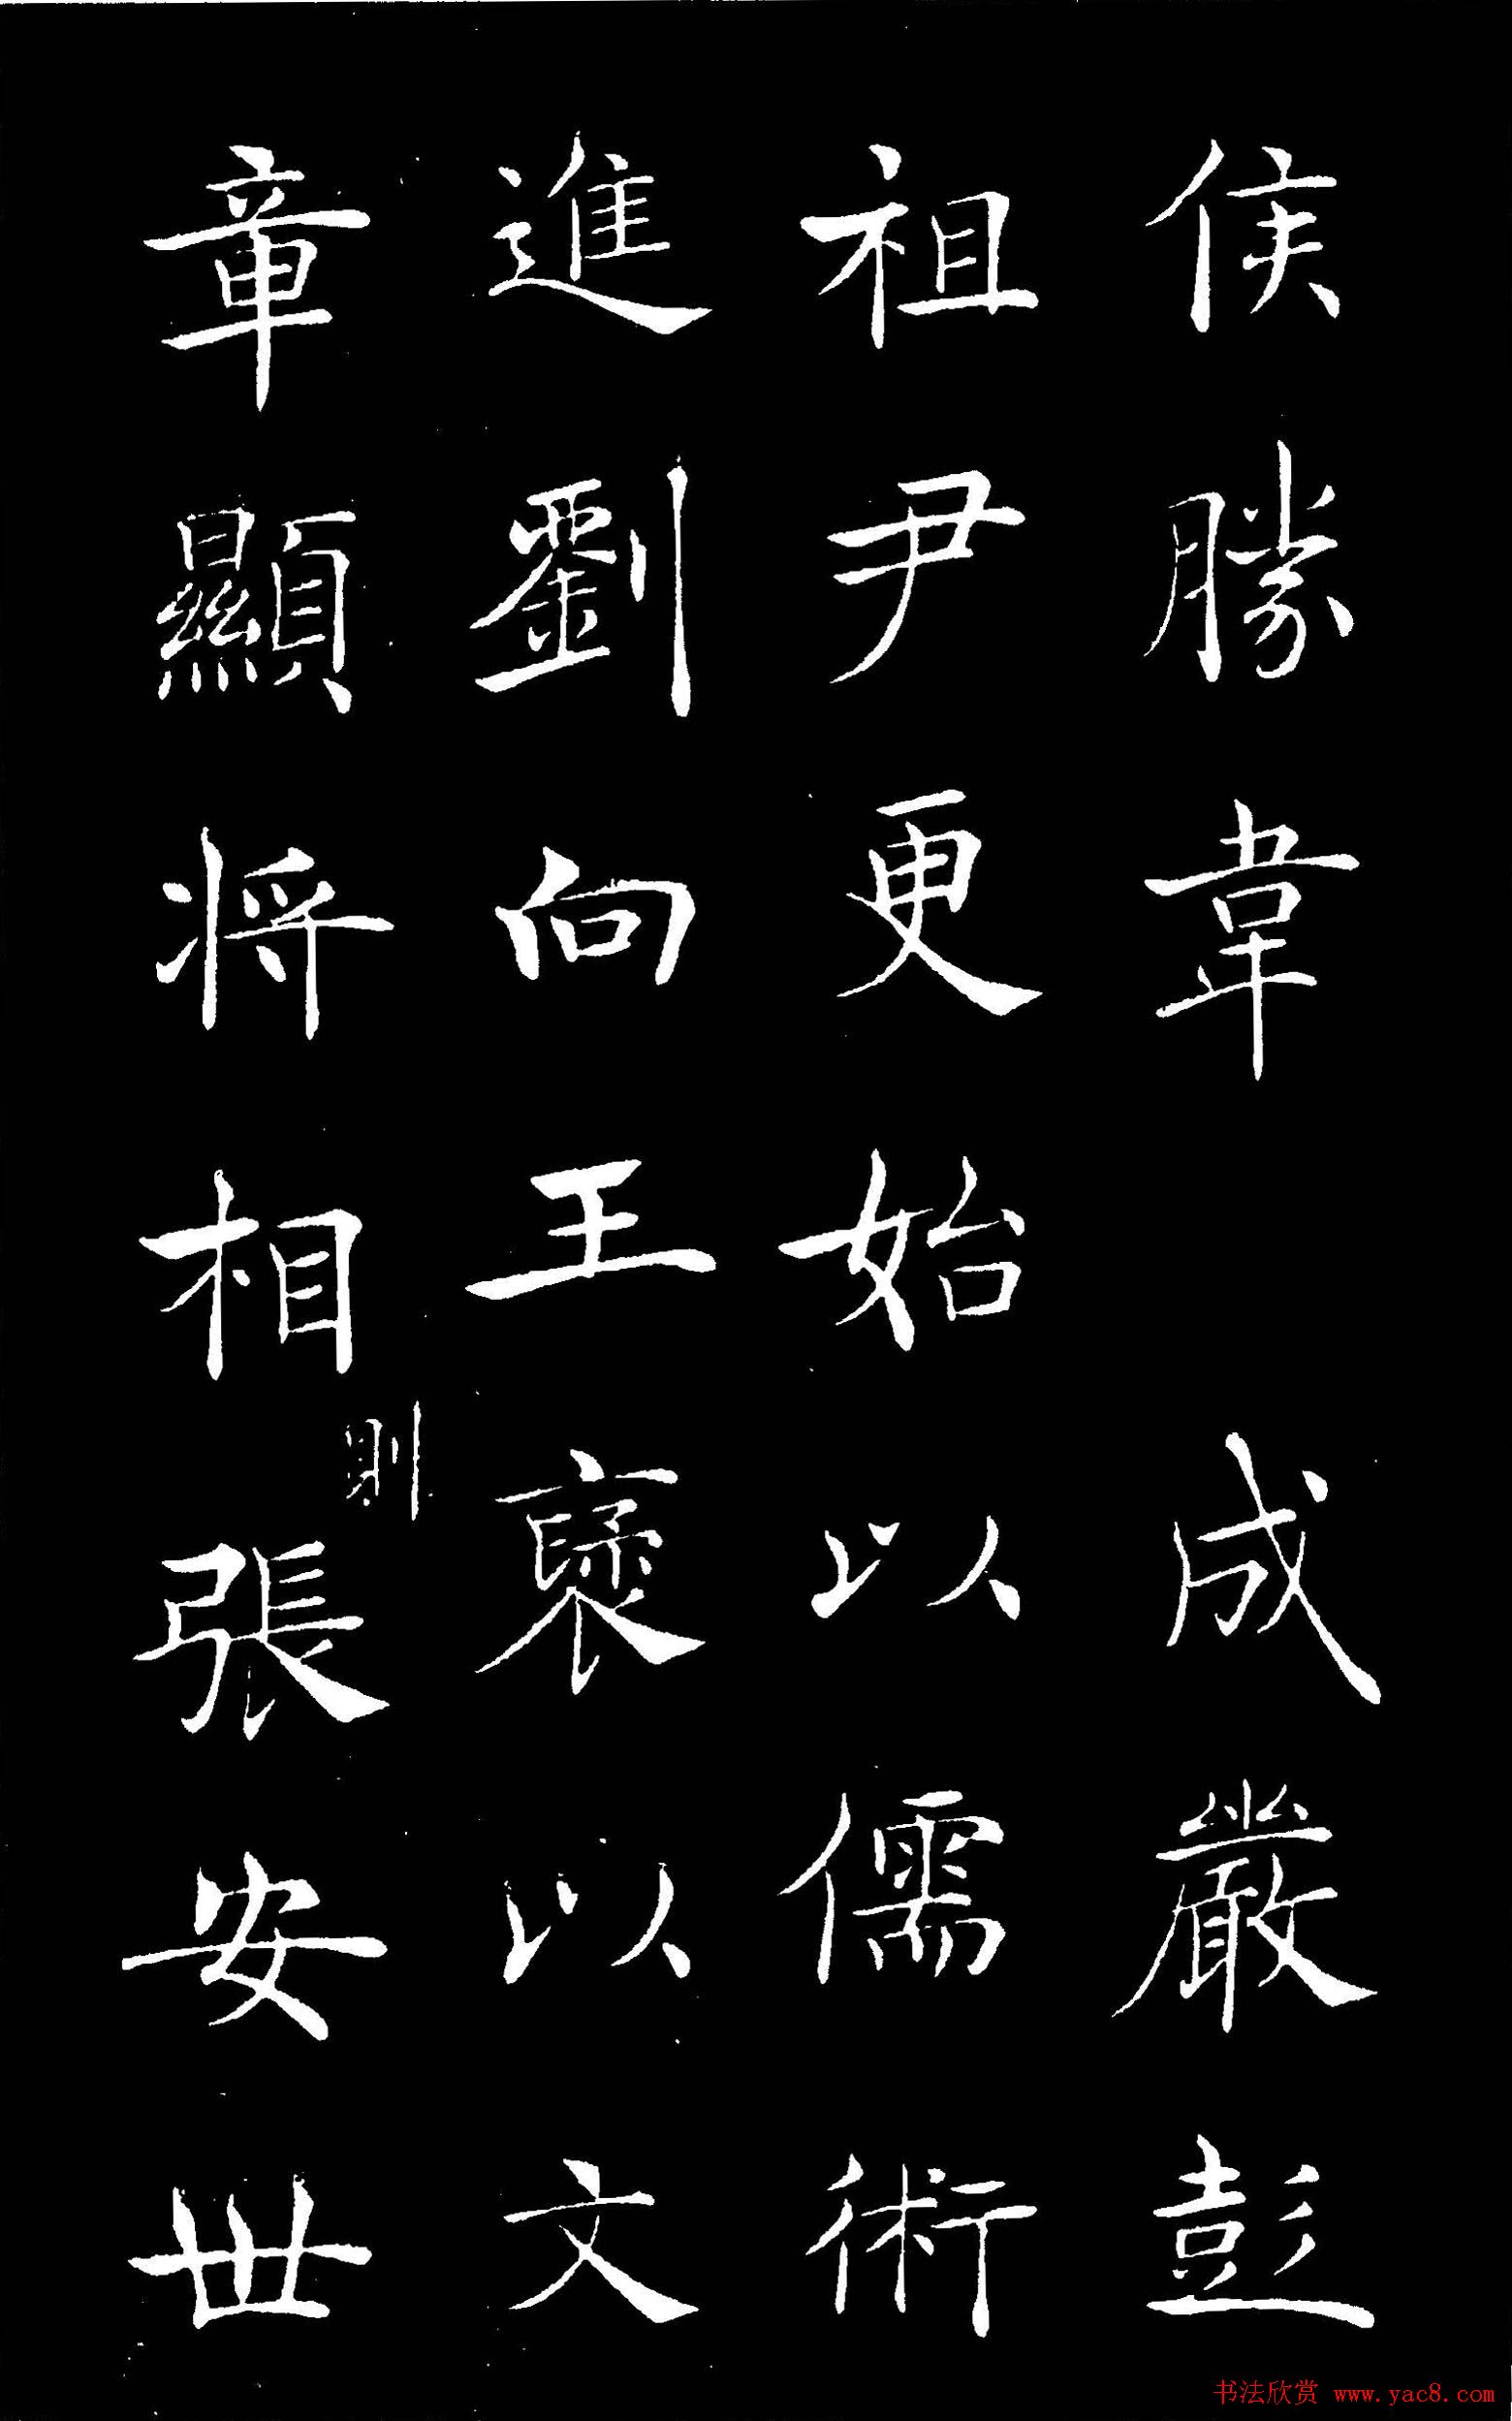 侯勝韋成嚴彭
祖尹更始以儒術
進劉向王襃以文
章顯將相則張安世
书法欣赏 www.yac8.com